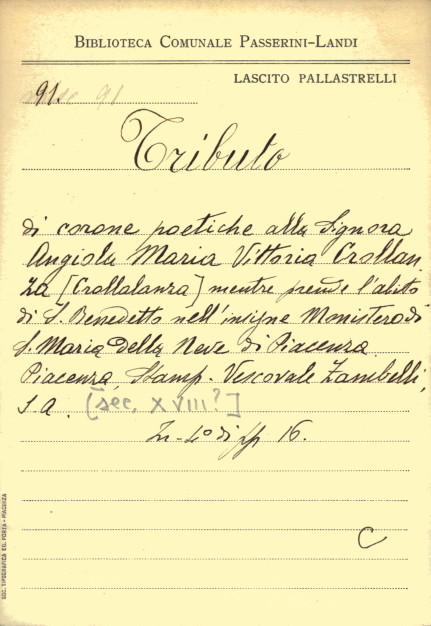 BIBLIOTECA COMUNALE PASSERINI-LANDI
LASCITO PALLASTRELLI
91.
Tributo
di corone poetiche alla Signora
Angiola Maria Vittoria Crollan
za [Crollalanza] mentre prende l'abito
di S. Benedetto nell'insigne Monistero di
S. Maria della Neve di Piacenza.
Piacenza, Stamp. Vescovale Zambelli,
s.a. [sec. XVIII?]
In-4º di pp 16.
C
SOC. TIPOGRAFICA ED. PORTA - PIACENZA